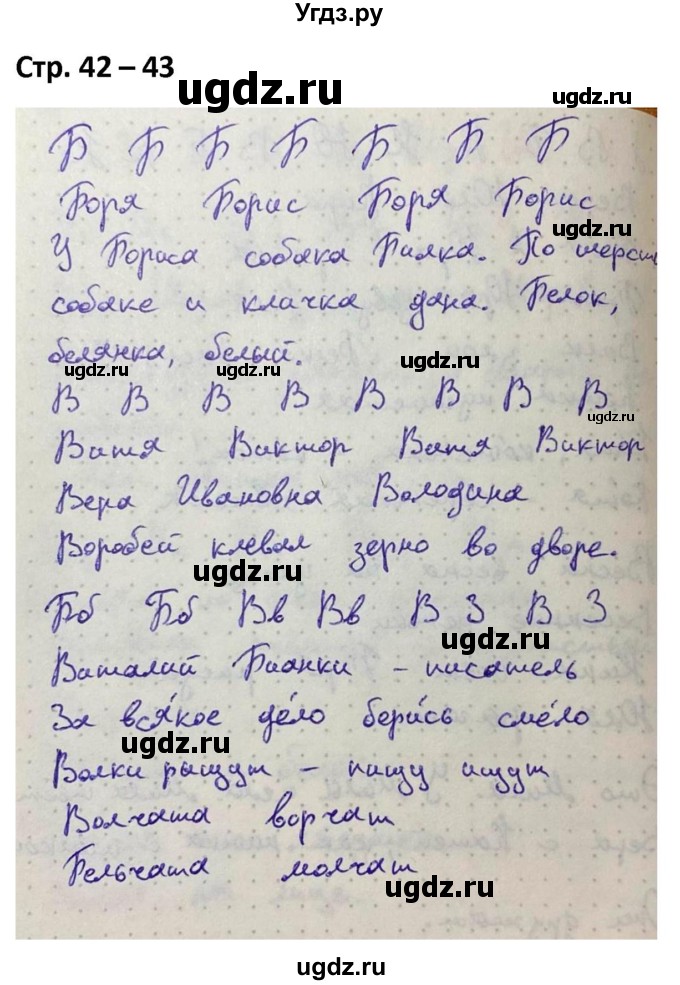 Угдз.ру
Стр. 42 – 43
ugdz.ru
ugdz.ru
Б Б Б Б Б Б Б
Боря Борис Боря Борис
ugdz.ru
У Бориса собака Билка. По шерсти
собаке и кличка дана. Белок,
белянка, белый.
ugdz.ru
ugdz.ru
ugdz.ru
В В В В В В В В
ugdz.ru
Витя Виктор Витя Виктор
Вера Ивановна Володина
Воробей клевал зерно во дворе.
ugdz.ru
Бб Бб Вв Вв В З В З
ugdz.ru
Виталий Бианки – писатель
За вся́кое де́ло бери́сь сме́ло
ugdz.ru
Волки рыщут – пищу ищут
Волчата ворчат
Бельчата молчат
ugdz.ru
ugdz.ru